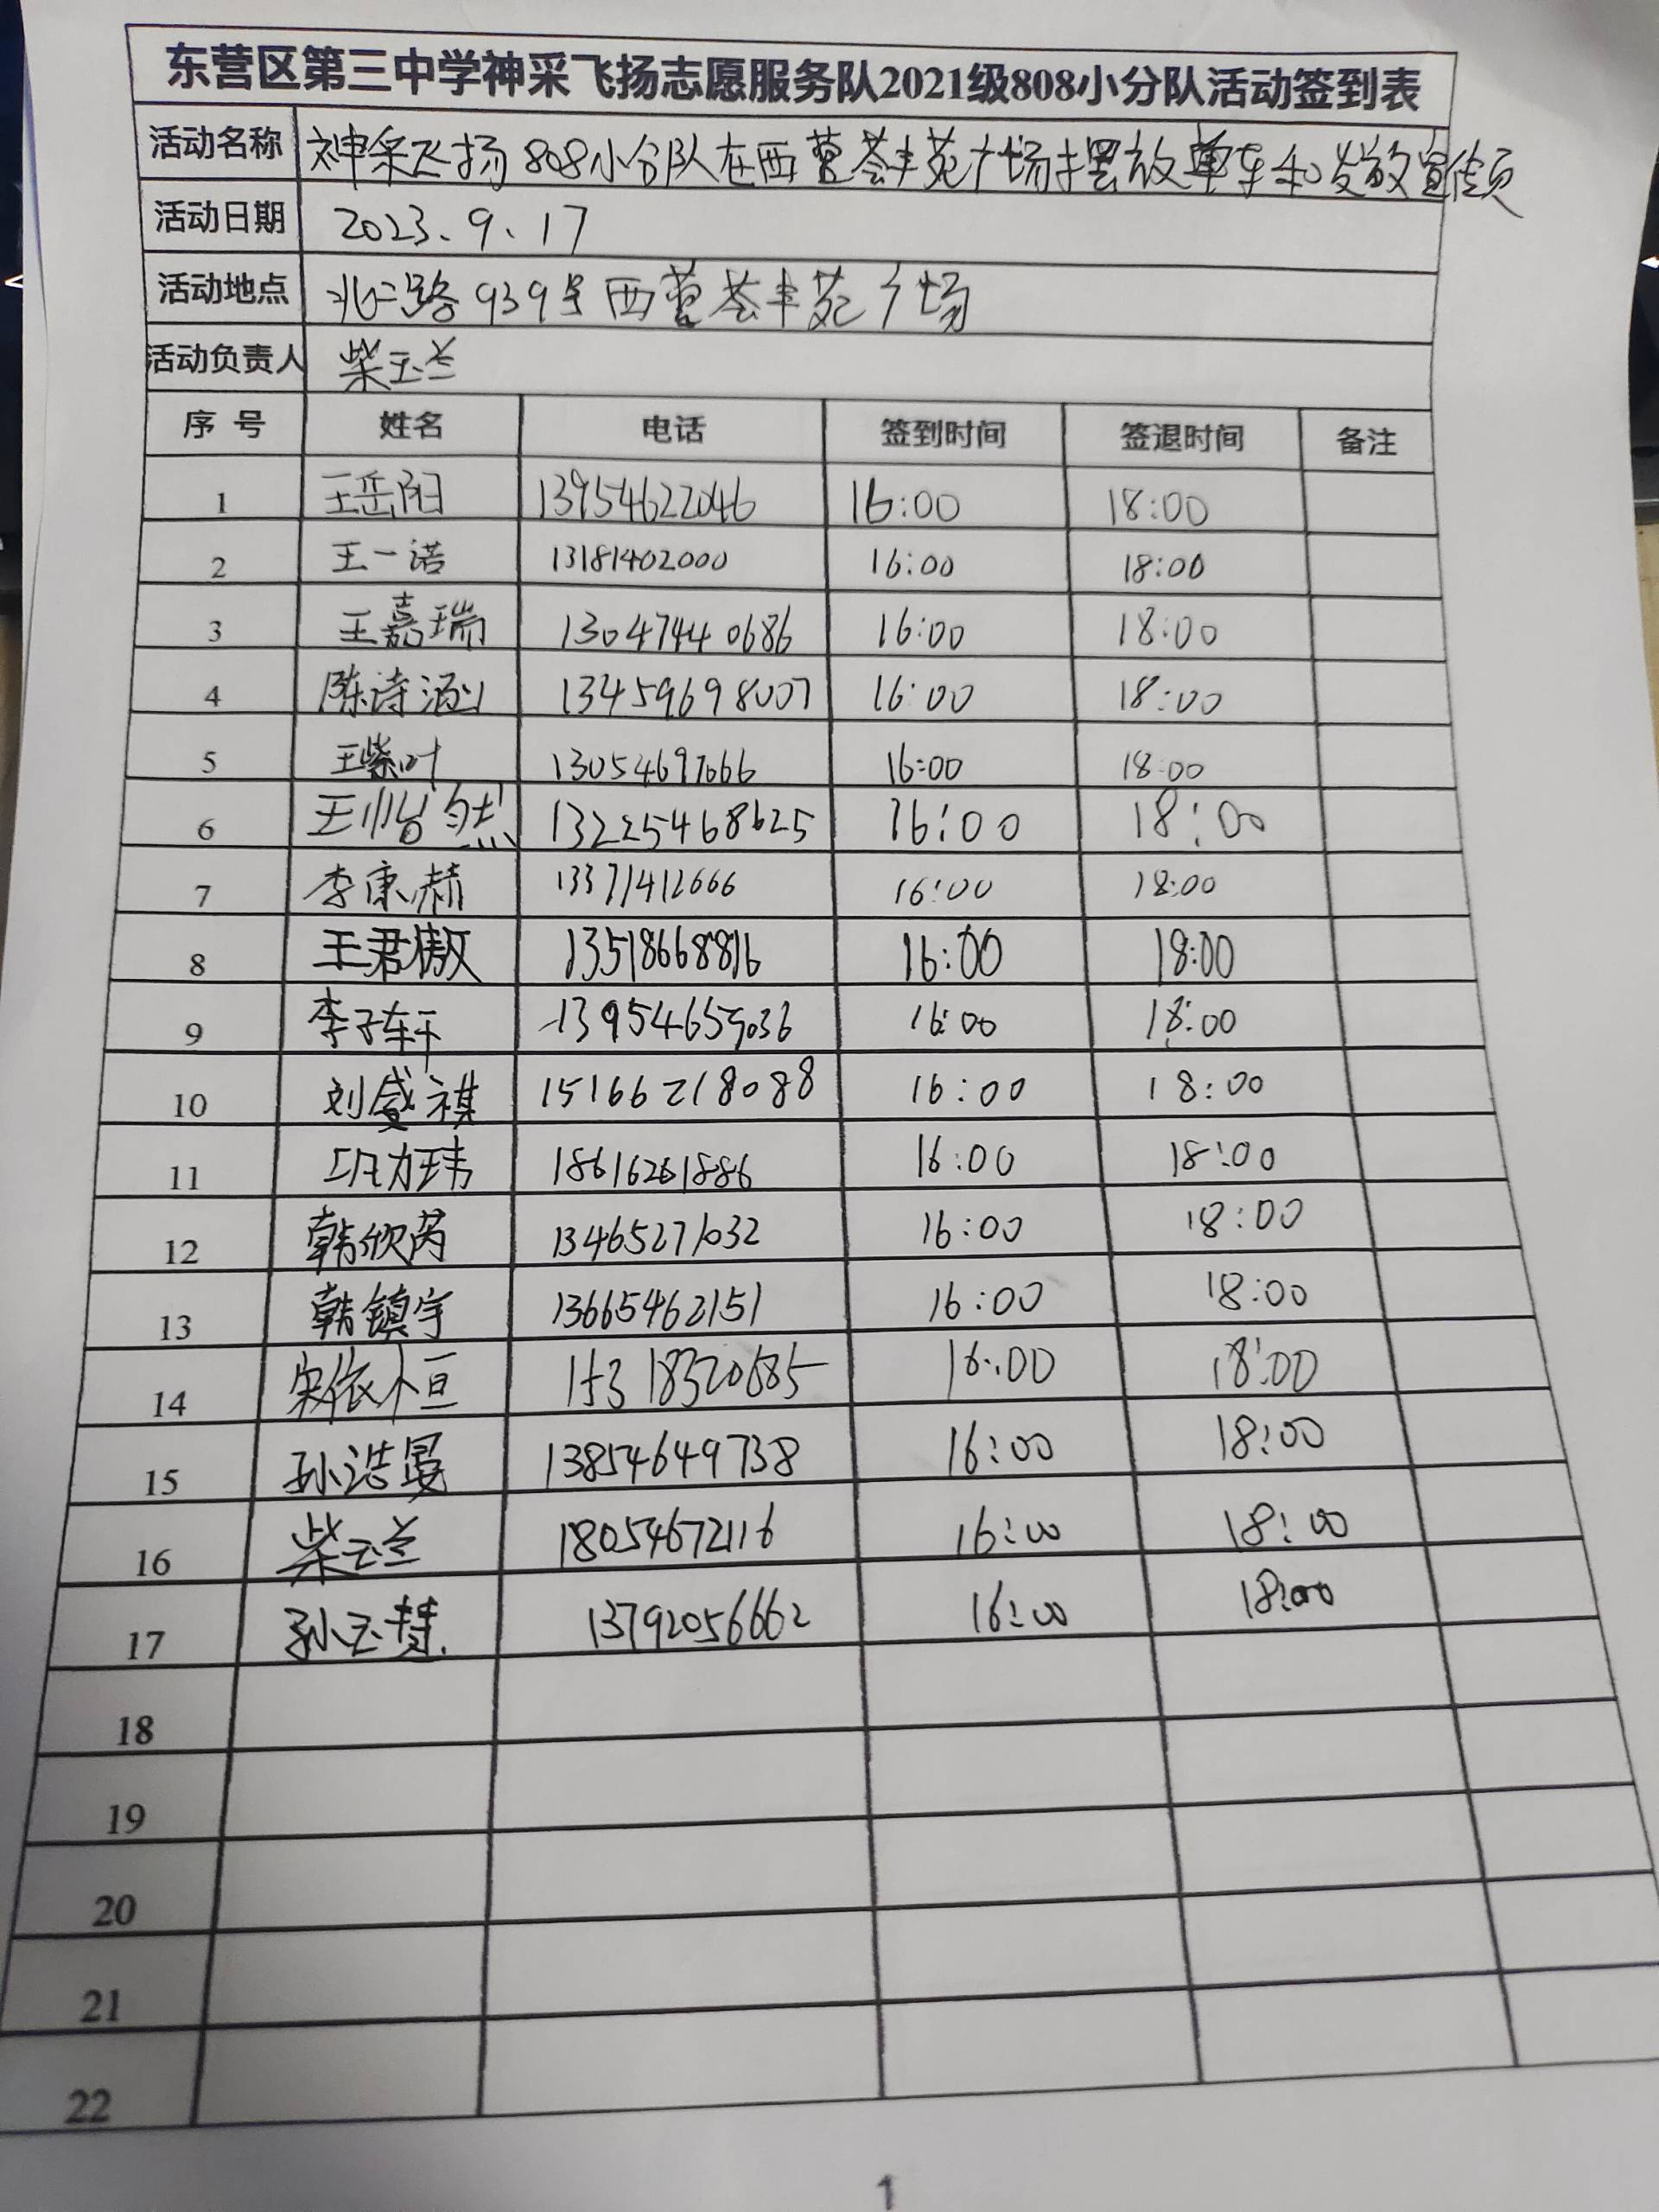 东营区第三中学神采飞扬志愿服务队2021级808小分队活动签到表
活动名称 神采飞扬808小分队在西营荟丰苑广场摆放单车和发放宣传页
活动日期 2023.9.17
活动地点 北二路939号西营荟丰苑广场
活动负责人 柴玉兰
序号 姓名 电话 签到时间 签退时间 备注
1 王岳阳 13954622046 16:00 18:00
2 王一诺 13181402000 16:00 18:00
3 王嘉瑞 13047440686 16:00 18:00
4 陈诗涵 13459698007 16:00 18:00
5 王紫叶 13054697666 16:00 18:00
6 13225468625 16:00 18:00
7 李康赫 13371412666 16:00 18:00
8 王君傲 13518668816 16:00 18:00
9 李子轩 13954659036 16:00 18:00
10 刘盛祺 15166218088 16:00 18:00
11 18616261886 16:00 18:00
12 韩欣芮 13465271032 16:00 18:00
13 韩镇宇 13665462151 16:00 18:00
14 宋依桓 15318320685 16:00 18:00
15 孙浩晏 13854649738 16:00 18:00
16 柴玉兰 18054672116 16:00 18:00
17 孙玉慧 13792056662 16:00 18:00
18
19
20
21
22
1